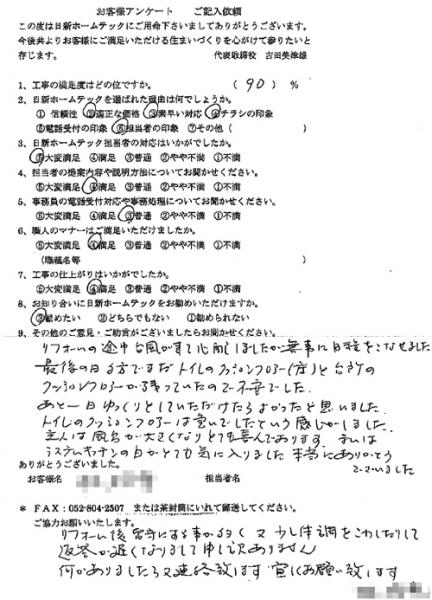 お客様アンケート　ご記入依頼
この度は日新ホームテックにご用命下さいましてありがとうございます。
今後共よりお客様にご満足いただける住まいづくりを心がけて参りたいと
存じます。　代表取締役　吉田美津雄
1、工事の満足度はどの位ですか。　（ 90 ）％
2、日新ホームテックを選ばれた理由は何でしょうか。
① 信頼性 ②適正な価格 ③素早い対応 ④チラシの印象
⑤電話受付の印象 ⑥担当者の印象 ⑦その他（　）
3、日新ホームテック担当者の対応はいかがでしたか。
⑤大変満足 ④満足 ③普通 ②やや不満 ①不満
4、担当者の提案内容や説明方法についてお聞かせください。
⑤大変満足 ④満足 ③普通 ②やや不満 ①不満
5、事務員の電話受付対応や事務処理についてお聞かせください。
⑤大変満足 ④満足 ③普通 ②やや不満 ①不満
6、職人のマナーはご満足いただけましたか。
⑤大変満足 ④満足 ③普通 ②やや不満 ①不満
（職種名等　）
7、工事の仕上がりはいかがでしたか。
⑤大変満足 ④満足 ③普通 ②やや不満 ①不満
8、お知り合いに日新ホームテックをお勧めいただけますか。
③勧めたい ②どちらでもない ①勧められない
9、その他のご意見・ご助言がございましたらお聞かせください。
リフォームの途中台風が来て心配しましたが無事に日程をこなせました
最後の日る方でまだトイレのクッションフロアー(床)と台所の
クッションフロアーが残っていたので不安でした。
あと一日ゆっくりとしていただけたらよかったと思いました。
トイレのクッションフロアーは急いでしたという感じがしました。
主人は風呂が大きくなりとても喜んでおります。私は
システムキッチンの白がとても気に入りました 本当にありがとう
ございました
ありがとうございました。
お客様名　担当者名
* FAX：052-804-2507 または茶封筒にいれて郵送してください。
ご協力お願いいたします。
リフォーム後 留守にする事が多く 又 少し体調をこわしたりして
返答が遅くなりまして申し訳ありません
何かありましたら又連絡致します 宜しくお願い致します